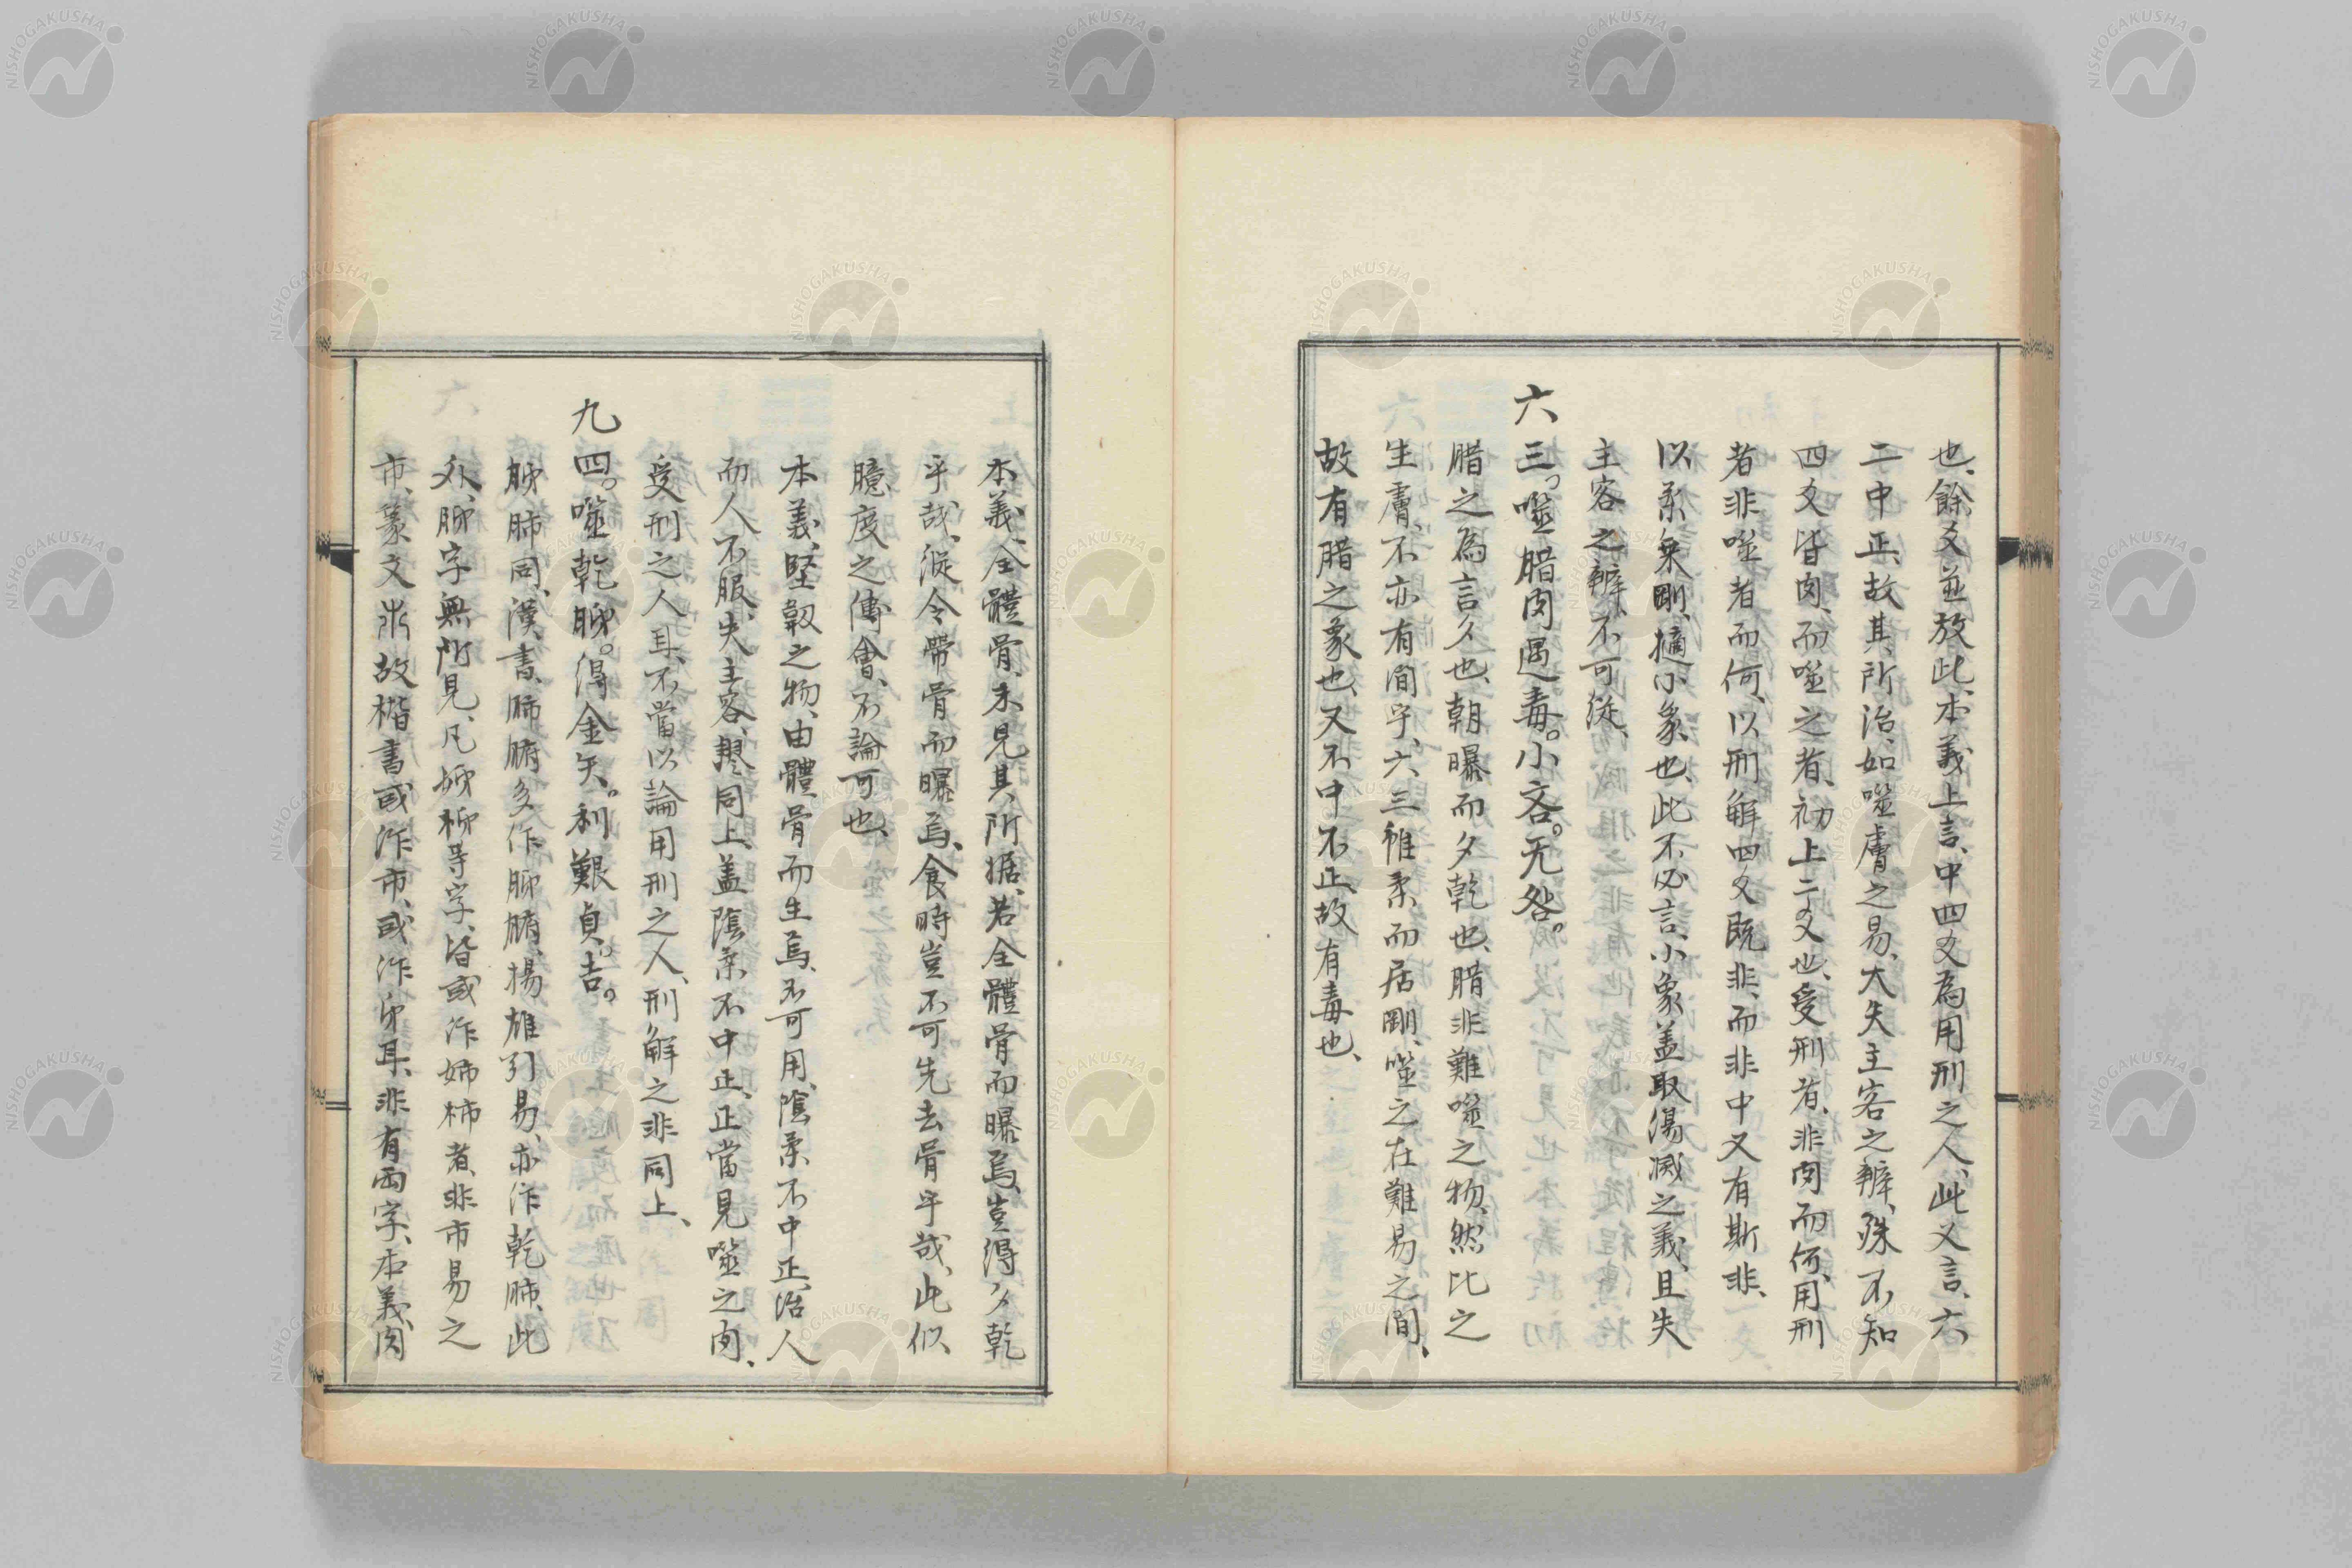 也、餘爻並放此、本義上言、中四爻為用刑之人、此爻言、六
二中正、故其所治、如噬膚之易、大失主客之辨、殊不知
四爻皆肉、而噬之者、初上二爻也、受刑者、非肉而何、用刑
者非噬者而何、以刑解四爻既非、而非中又有斯非、
以柔乗剛、摘小象也、此不必言、小象盖取傷滅之義、且失
主客之辨、不可從、
六三。噬腊肉遇毒。小吝。无咎。
腊之為言久也、朝曝而夕乾也、腊非難噬之物、然比之
生膚、不亦有間乎、六三雖柔而居剛、噬之在難易之間、
故有腊之象也、又不中不正、故有毒也、
本義、全體骨、未見其所据、若全體骨而曝焉、豈得夕乾
乎哉、縱令帶骨而曝焉、食時豈不可先去骨乎哉、此似
臆度之傅會、不論可也、
本義、堅靱之物、由體骨而生焉、不可用、陰柔不中正、治人
而人不服、失主客、謬同上、盖陰柔不中正、正當見噬之肉、
受刑之人耳、不當以論用刑之人、刑解之非同上、
九四。噬乾胏。得金矢。利艱貞。吉。
胏肺同、漢書、肺腑多作胏腑、揚雄引易、亦作乾肺、此
外、胏字無所見、凡姊柹等字、皆或作姉柿者、非市易之
市、篆文𣎵故楷書或作市、或作𠂔耳、非有兩字、本義、肉